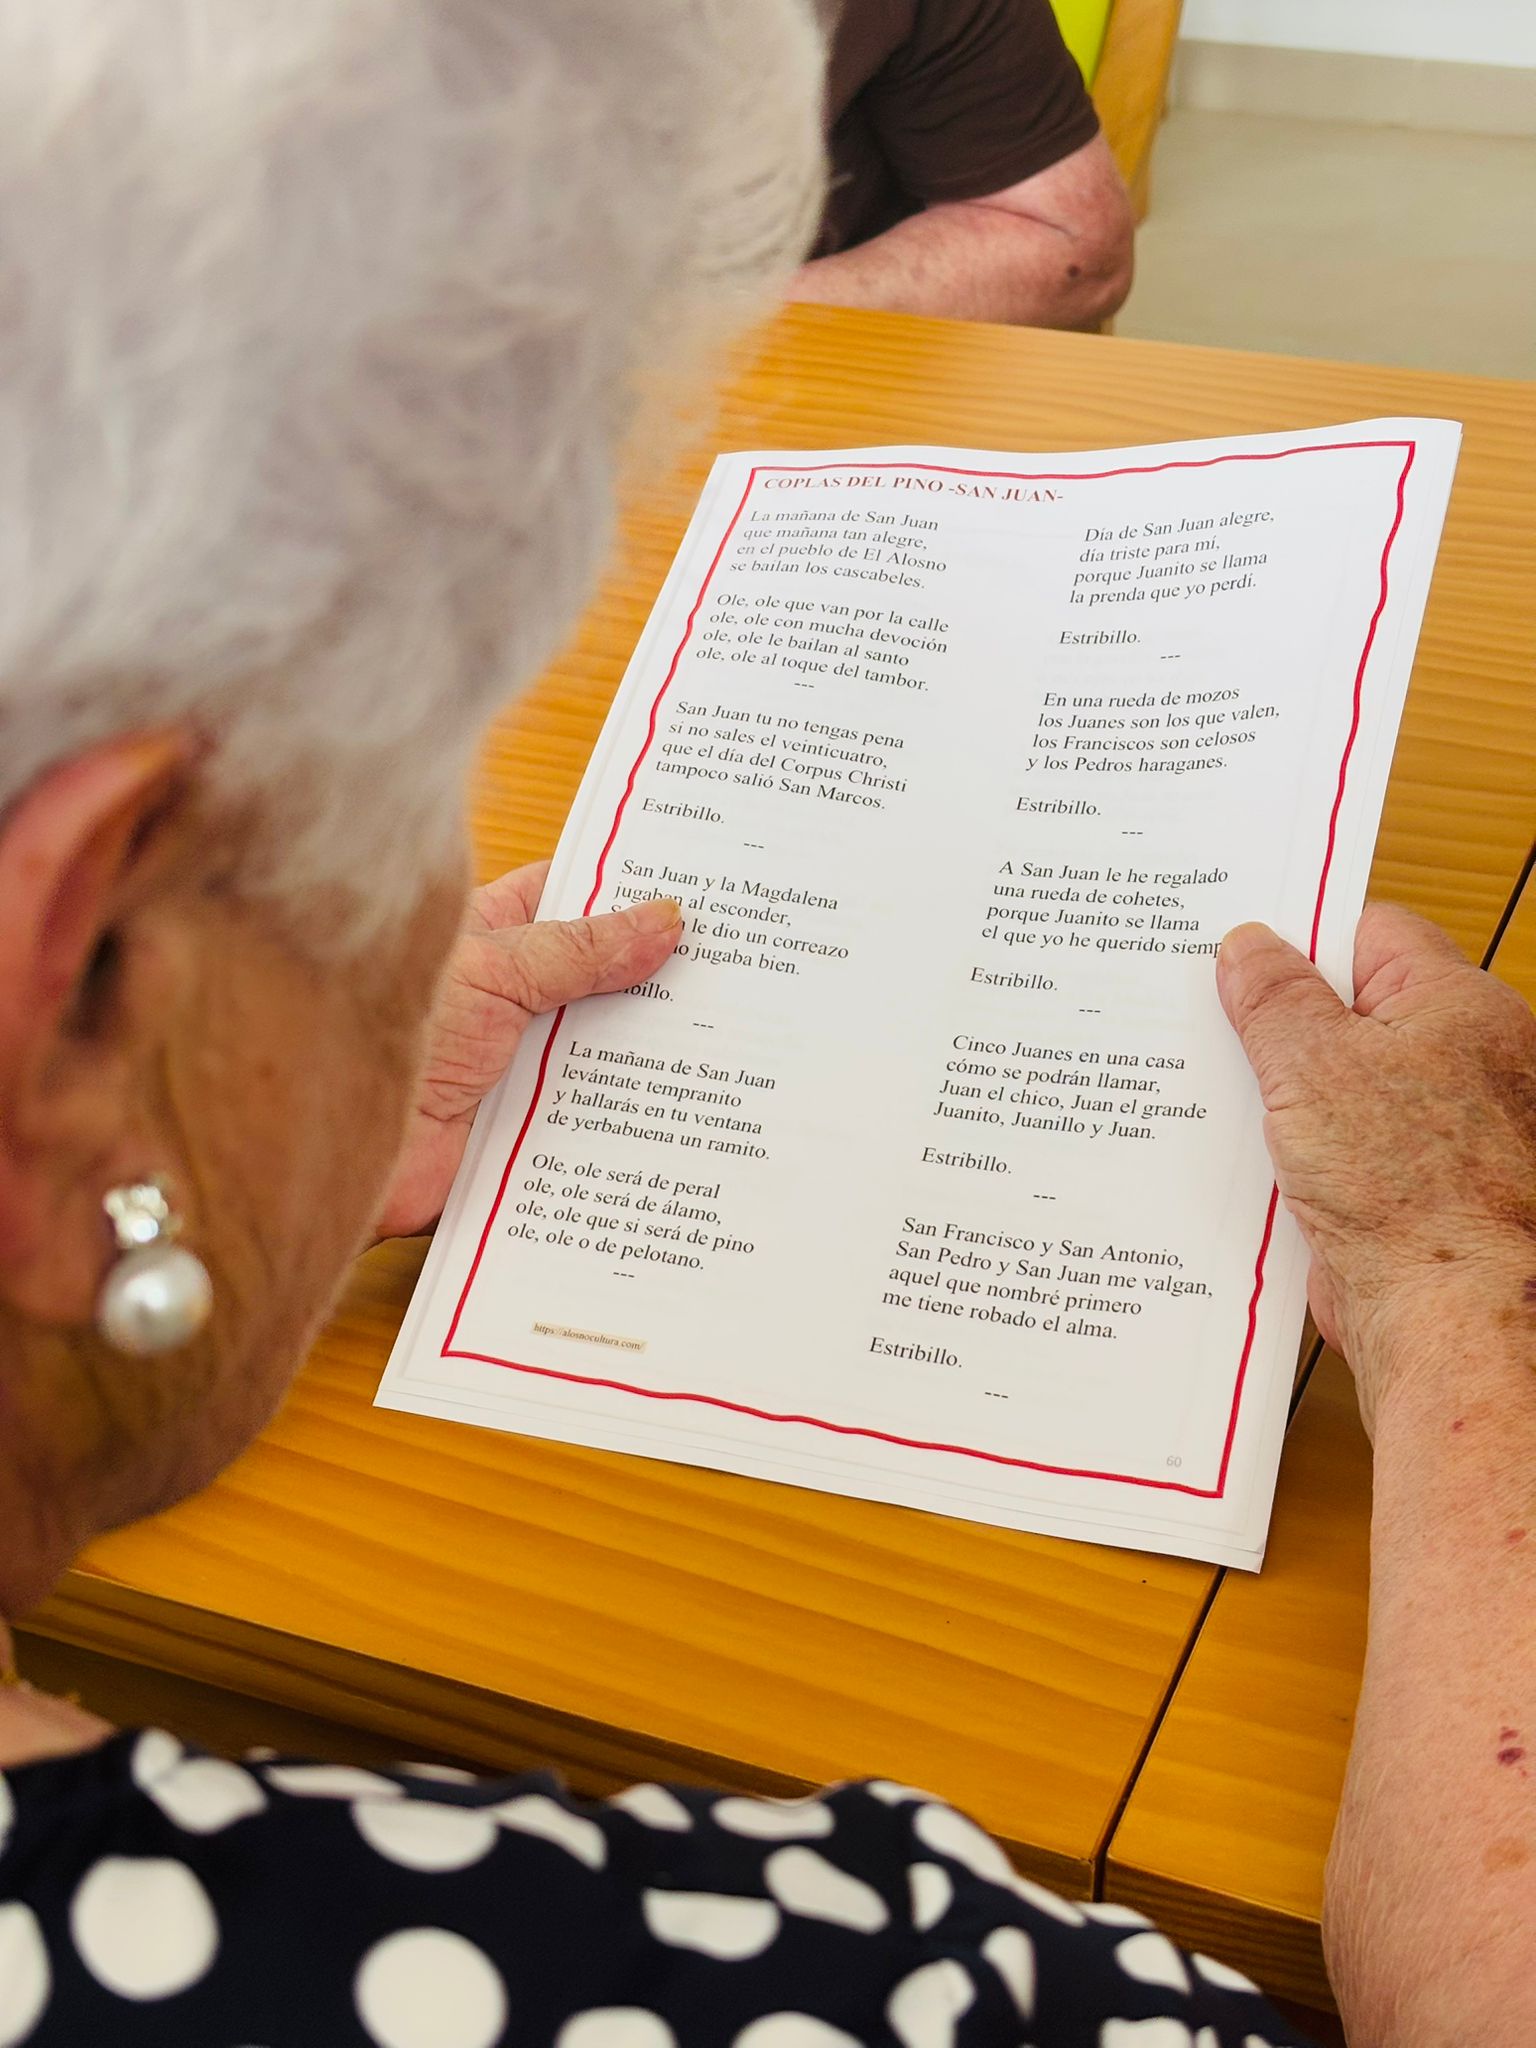 COPLAS DEL PINO -SAN JUAN-
La mañana de San Juan
que mañana tan alegre,
en el pueblo de El Alosno
se bailan los cascabeles.
Ole, ole que van por la calle
ole, ole con mucha devoción
ole, ole le bailan al santo
ole, ole al toque del tambor.
---
San Juan tu no tengas pena
si no sales el veinticuatro,
que el día del Corpus Christi
tampoco salió San Marcos.
Estribillo.
---
San Juan y la Magdalena
jugaban al esconder,
le dio un correazo
jugaba bien.
---
La mañana de San Juan
levántate tempranito
y hallarás en tu ventana
de yerbabuena un ramito.
Ole, ole será de peral
ole, ole será de álamo,
ole, ole que si será de pino
ole, ole o de pelotano.
---
https://alosnocultura.com/
Día de San Juan alegre,
día triste para mí,
porque Juanito se llama
la prenda que yo perdí.
Estribillo.
---
En una rueda de mozos
los Juanes son los que valen,
los Franciscos son celosos
y los Pedros haraganes.
Estribillo.
---
A San Juan le he regalado
una rueda de cohetes,
porque Juanito se llama
el que yo he querido
Estribillo.
---
Cinco Juanes en una casa
cómo se podrán llamar,
Juan el chico, Juan el grande
Juanito, Juanillo y Juan.
Estribillo.
---
San Francisco y San Antonio,
San Pedro y San Juan me valgan,
aquel que nombré primero
me tiene robado el alma.
Estribillo.
---
60